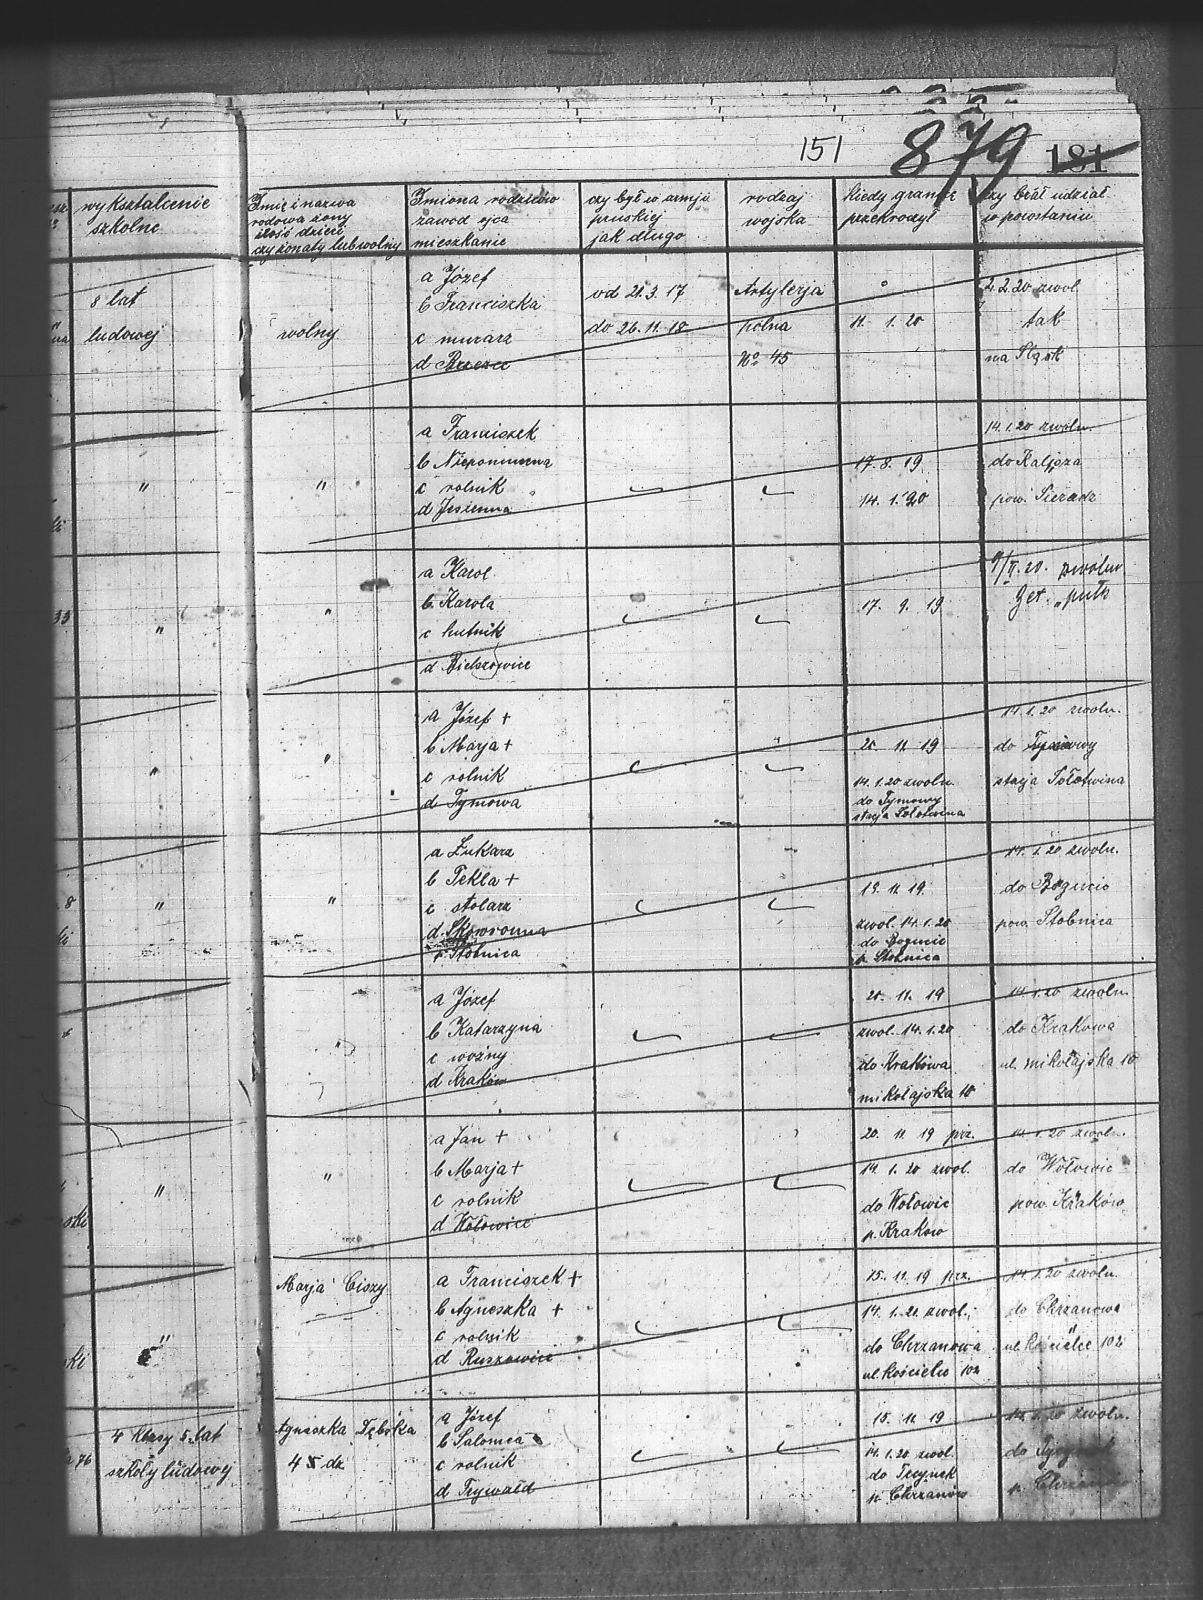 151 879 181
wykształcenie
szkolne
Imię i nazwa
rodowa żony
ilość dzieci
czy żonaty lub wolny
Imiona rodziców
zawód ojca
mieszkanie
czy był w armji
pruskiej
jak długo
rodzaj
wojska
Kiedy granicę
przekroczył
czy brał udział
w powstaniu
8 lat
ludowej
wolny
a Józef
b Franciszka
c murarz
d Brzezce
od 21.3.17
do 26.11.18
Artylerja
polna
No 45
11. 1. 20
2.2.20 zwol.
tak
na Śląsk
"
"
a Franciszek
b Niepomucena
c rolnik
d Jesienna
17. 8. 19
14. 1. 20
14.1.20 zwoln.
do Kalisza
pow. Sieradz
33
"
"
a Karol
b Karola
c hutnik
d Bielszowice
17. 9. 19
zwoln
"
"
a Józef +
b Marja +
c rolnik
d Tymowa
20. 11. 19
14.1.20 zwoln.
do Tymowy
stacja Sołotwina
14.1.20 zwoln.
do Tymowy
stacja Sołotwina
8
"
"
a Łukasz
b Tekla +
c stolarz
d Skowronna
p. Stobnica
19. 11. 19.
zwol. 14.1.20
do Bogucic
p. Stobnica
14. 1. 20 zwoln.
do Bogucic
pow. Stobnica
"
a Józef
b Katarzyna
c woźny
d Kraków
20. 11. 19
zwol. 14.1.20
do Krakowa
mikołajska 10
14.1.20 zwoln.
do Krakowa
ul. mikołajska 10
"
"
a Jan +
b Marja +
c rolnik
d Wołowice
20. 11 19 prz.
14. 1. 20 zwol.
do Wołowic
p. Kraków
14.1.20 zwol.
do Wołowic
pow. Kraków
"
Marja Ciszy
a Franciszek +
b Agneszka +
c rolnik
d Ruszowice
15. 11. 19 prz.
14. 1. 20 zwol.
do Chrzanowa
ul. Kościelec 102
14.1.20 zwoln.
do Chrzanowa
ul. Kościelec 102
76
4 klasy 5 lat
szkoły ludowej
Agneszka Dębska
4 5 dz
a Józef
b Salomea
c rolnik
d Frywałd
15. 11. 19
14.1.20 zwol.
do Tęcynek
p. Chrzanów
14.1.20 zwoln.
do
p. Chrzanów